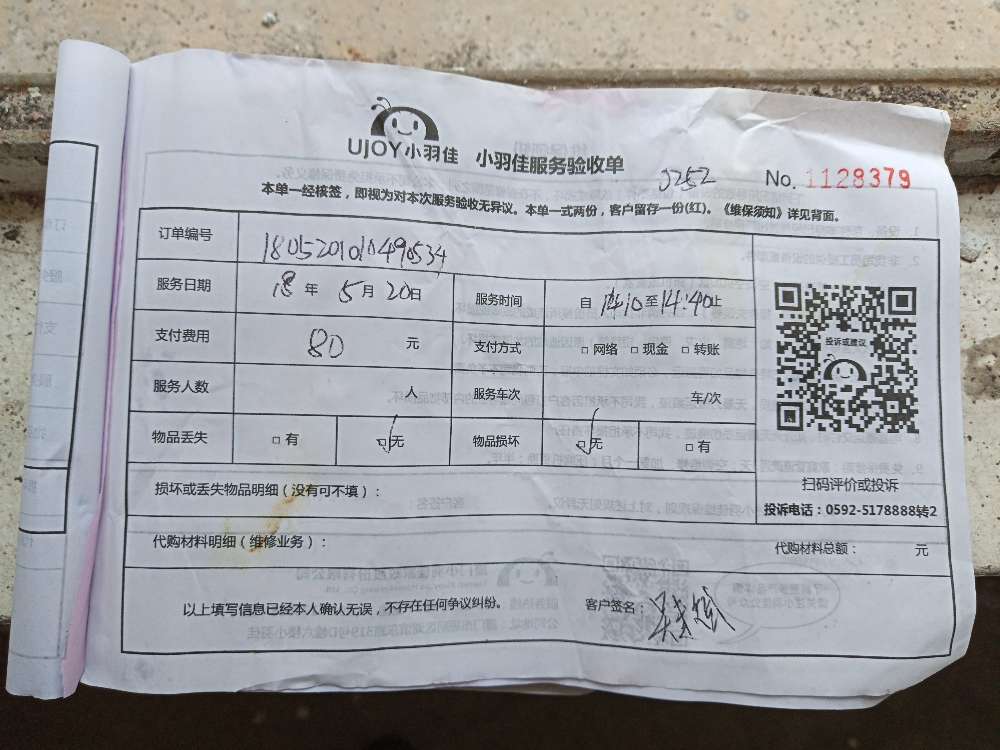 UJOY小羽佳 小羽佳服务验收单
0252 No. 1128379
本单一经核签，即视为对本次服务验收无异议。本单一式两份，客户留存一份(红)。《维保须知》详见背面。
订单编号 1805201010490534
服务日期 18 年 5 月 20 日 服务时间 自 14:10 至 14:40 止
支付费用 80 元 支付方式 □ 网络 □ 现金 □ 转账
投诉或建议
服务人数 人 服务车次 车/次
物品丢失 □ 有 □ 无 物品损坏 □ 无 □ 有
扫码评价或投诉
损坏或丢失物品明细（没有可不填）：
投诉电话：0592-5178888转2
代购材料明细（维修业务）： 代购材料总额： 元
以上填写信息已经本人确认无误，不存在任何争议纠纷。 客户签名：